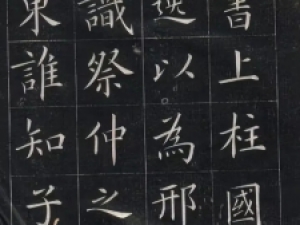 書上柱國
以為邢
識祭仲之
東誰知子